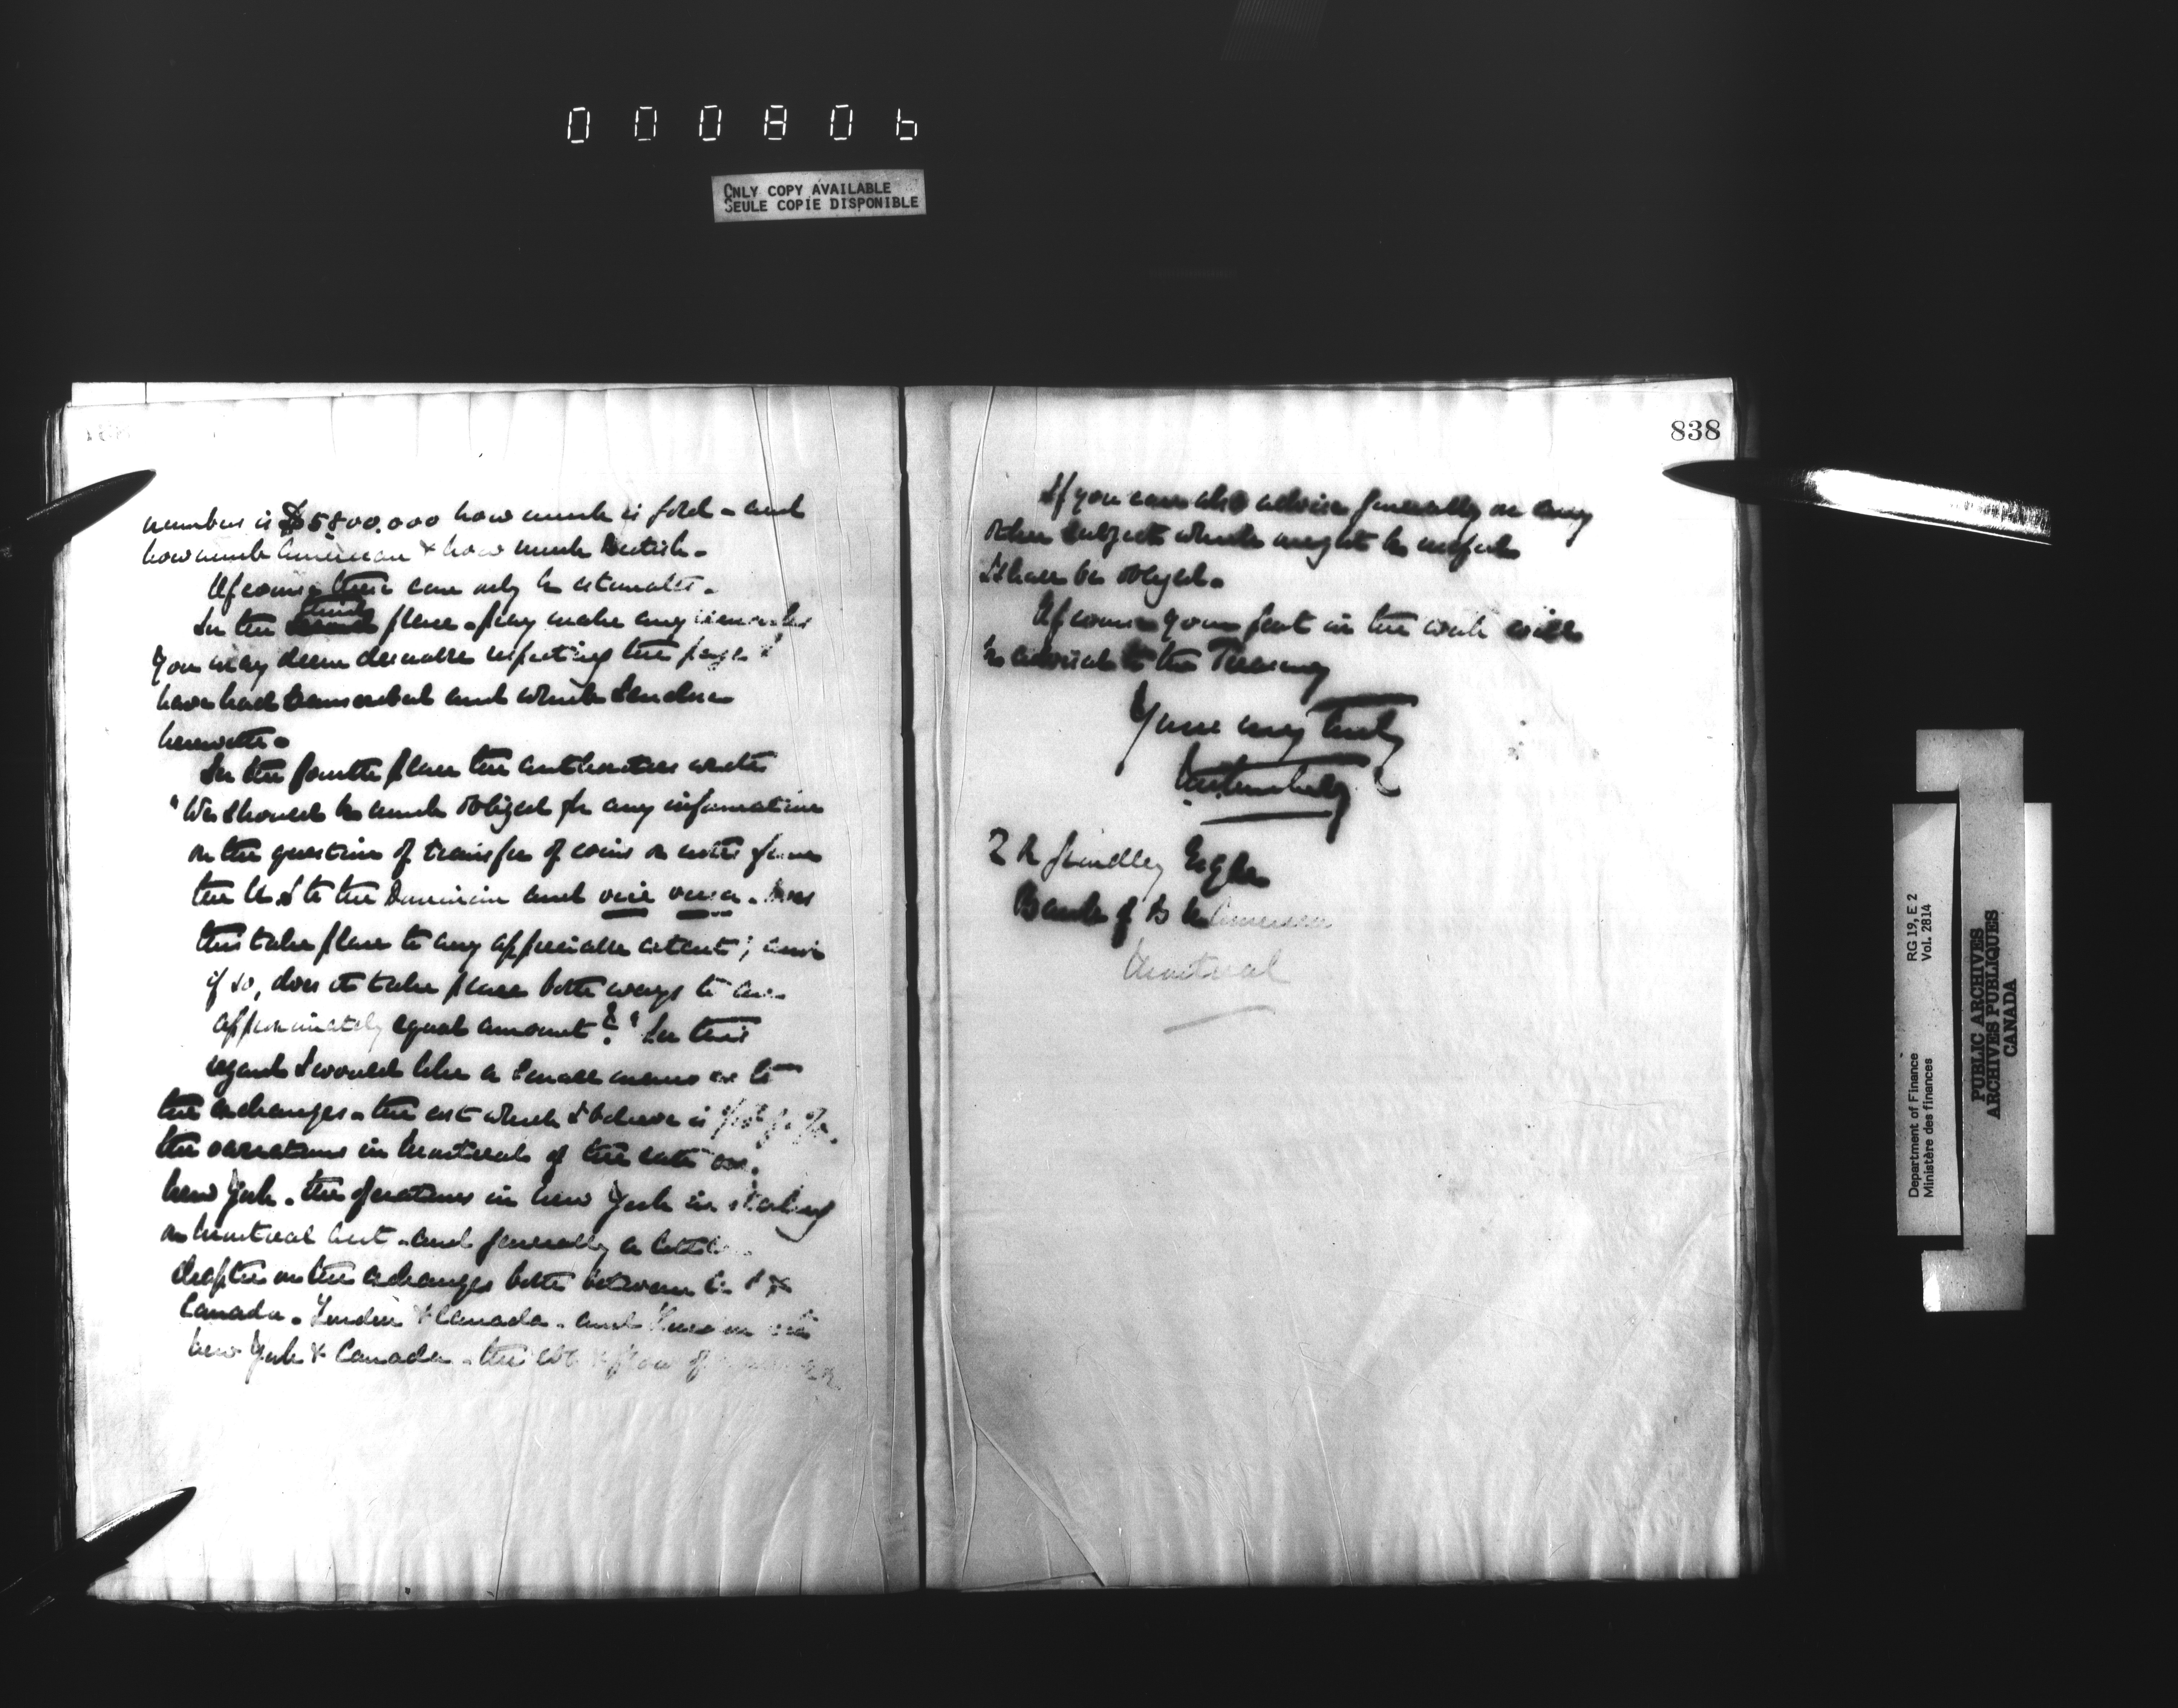 000806
ONLY COPY AVAILABLE
SEULE COPIE DISPONIBLE
number is $5800.000 how much is gold - and
how much American & how much British -
Of course these can only be estimates -
In the third place - pray make any remarks
you may deem desirable respecting the pages I
have had transcribed and which I enclose
herewith -
In the fourth place the authorities write
"We should be much obliged for any information
on the question of transfer of coins or notes from
the U.S to the Dominion and vice versa - Does
this take place to any appreciable extent; and
if so, does it take place both ways to an
approximately equal amount?" In this
regard I would like a small memo as to
the exchanges - the cost which I believe is
the variations in Montreal of the rate on
New York - the operations in New York in sterling
on Montreal acct - and generally a little
chapter on the exchanges both between U.S &
Canada - London & Canada - and London with
New York & Canada - the ebb & flow of
838
If you can also advise generally on any
other subject which might be useful
I shall be obliged -
Of course your part in the work will
be advised to the Treasury
Yours very truly
R Grindley Esqre
Bank of B N America
Montreal
Department of Finance RG 19, E 2
Ministère des finances Vol. 2814
PUBLIC ARCHIVES
ARCHIVES PUBLIQUES
CANADA